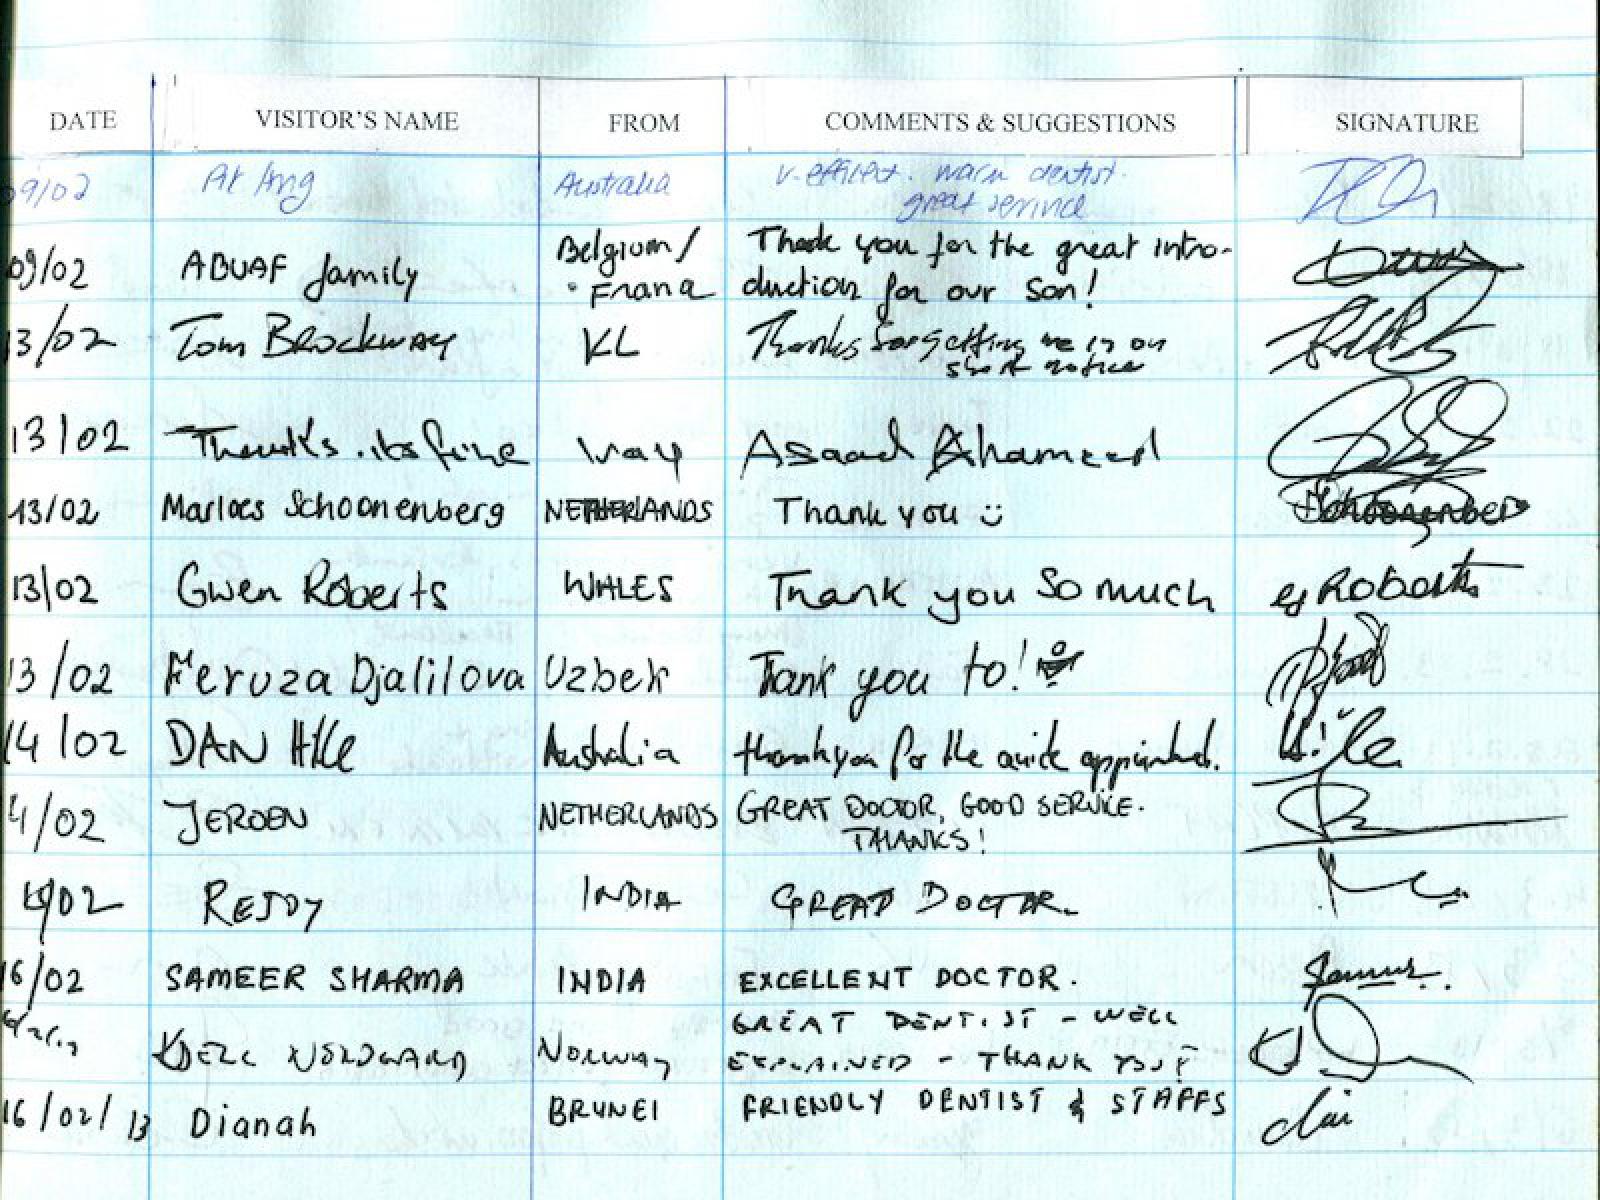 DATE VISITOR'S NAME FROM COMMENTS & SUGGESTIONS SIGNATURE
09/02 Australia v. efficient. warm dentist.
great service
09/02 ABUAF family Belgium/ Thank you for the great intro-
France duction for our son!
13/02 Tom Brockway KL Thanks for getting me in on
short notice
13/02 Thanks. its fine Iraq Asaad Ahameed
13/02 Marloes Schoonenberg NETHERLANDS Thank you Schoonenberg
13/02 Gwen Roberts WALES Thank you so much Roberts
13/02 Feruza Djalilova Uzbek Tank you to!
14/02 DAN Hille Australia thankyou for the quick appointment.
4/02 JEROEN NETHERLANDS GREAT DOCTOR, GOOD SERVICE.
THANKS!
02 REDDY INDIA GREAT DOCTOR.
16/02 SAMEER SHARMA INDIA EXCELLENT DOCTOR.
GREAT DENTIST – WELL
NORWAY EXPLAINED – THANK YOU!
16/02/13 Dianah BRUNEI FRIENDLY DENTIST & STAFFS